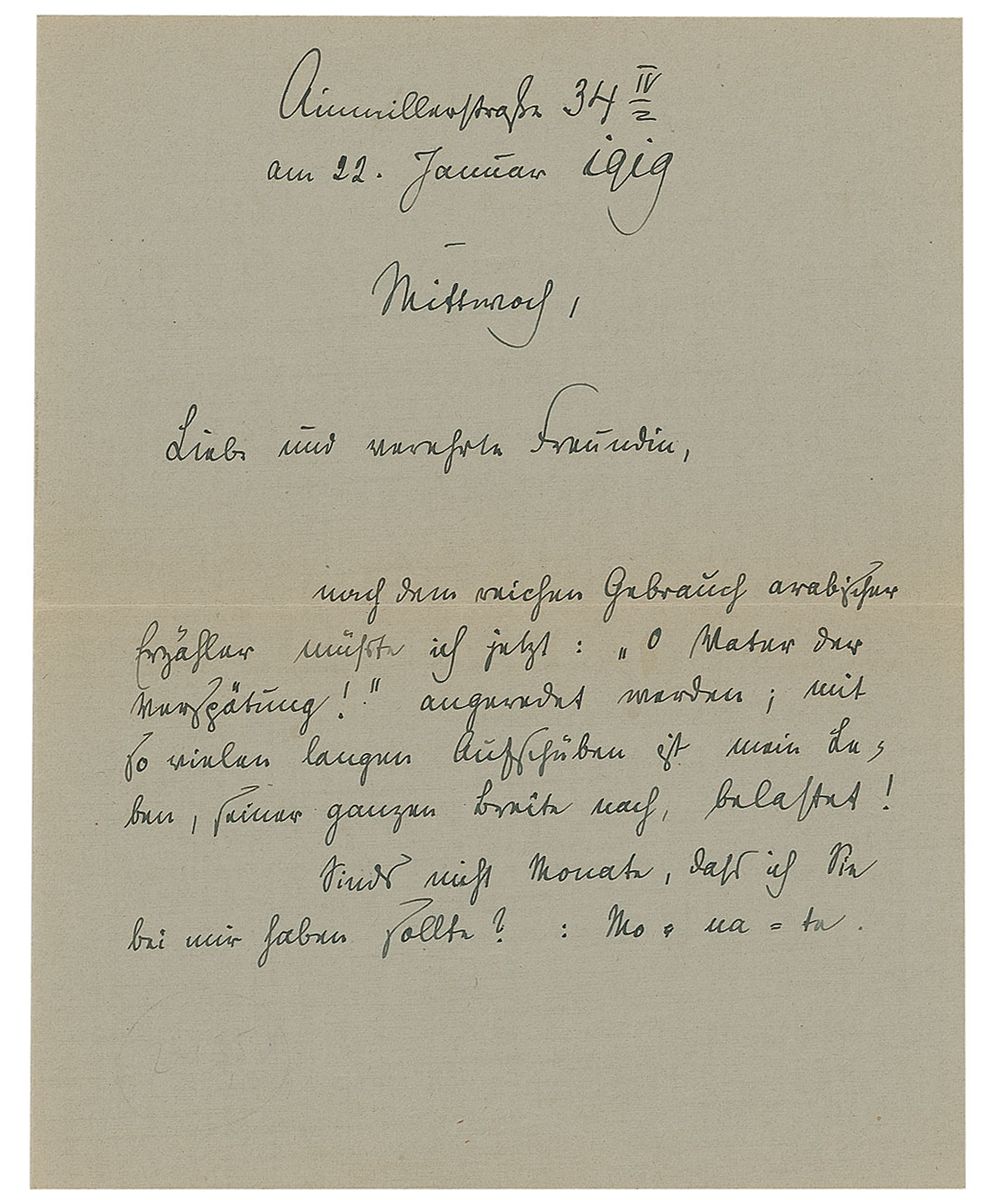 Ainmillerstraße 34 IV
am 22. Januar 1919
Mittwoch,
Liebe und verehrte Freundin,
nach dem reichen Gebrauch arabischer
Erzähler müßte ich jetzt: „O Vater der
Verspätung!" angeredet werden; mit
so vielen langen Aufschüben ist mein Le=
ben, seiner ganzen Breite nach, belastet!
Sinds nicht Monate, daß ich Sie
bei mir haben sollte? : Mo = na = te.